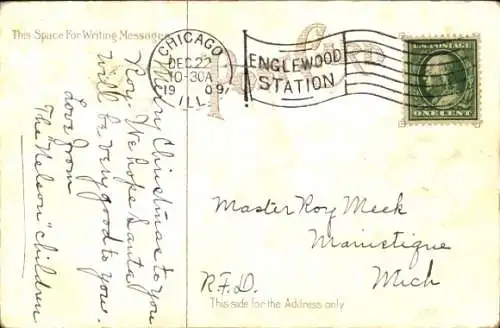 This Space For Writing Messages
Post Card
CHICAGO
DEC 22
10-30A
1909
ILL.
ENGLEWOOD
STATION
U.S. POSTAGE
ONE CENT
Merry Christmas to you
Roy. We hope Santa
will be very good to you.
Love from
The "Nelson" children
Master Roy Meek
Manistique
Mich
R.F.D.
This side for the Address only